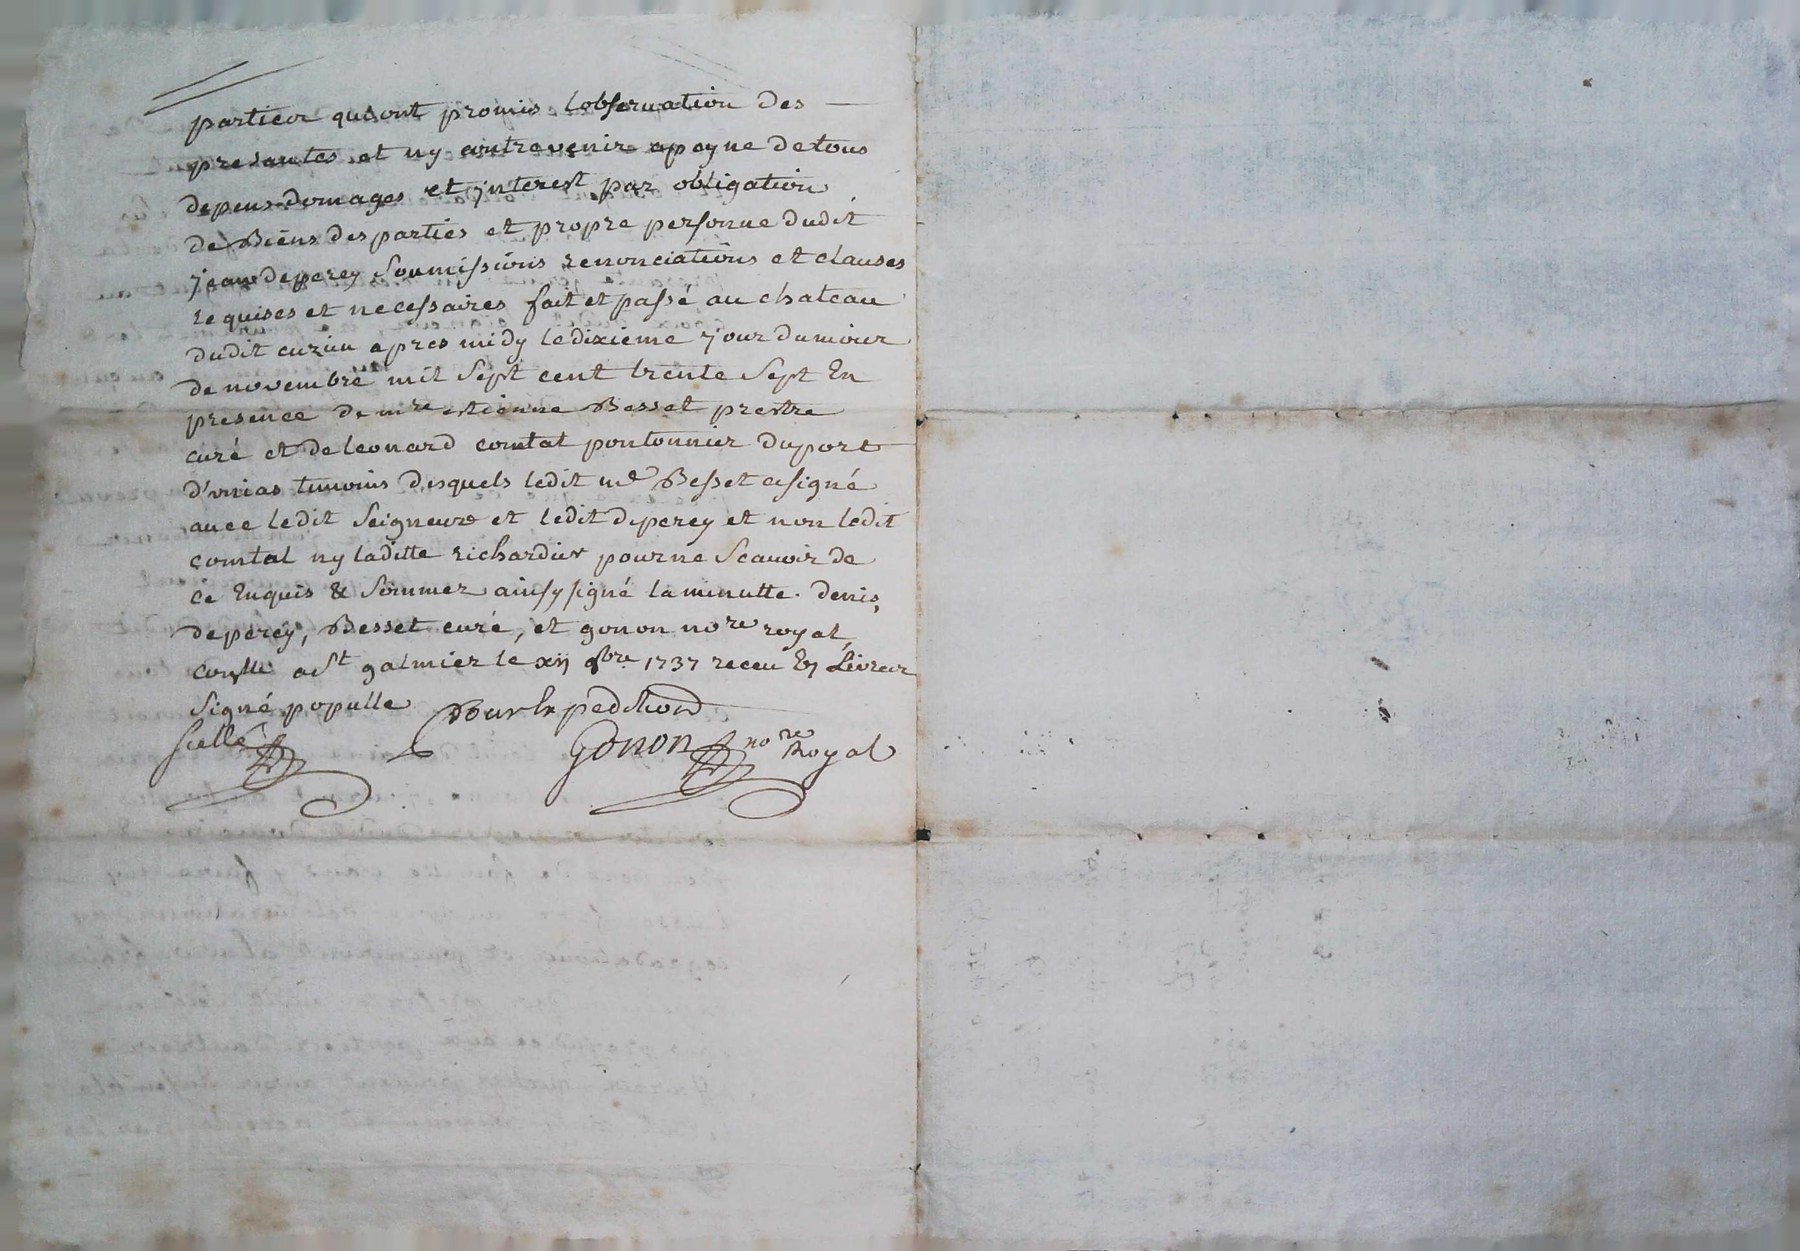 parties qui ont promis lobseruation des
presantes et ny contrevenir apeyne de tous
depens domages et jnterest par obligation
de Biens des parties et propre personne dudit
jean deperey Soumissions renonciations et clauses
requises et necessaires fait et passé au chateau
dudit cuzieu apres midy le dixieme jour du mois
de novembre mil Sept cent trente Sept En
presence de mre estienne Besset prestre
curé et de leonard comtal pontonnier du port
d'unias temoins desquels ledit mr Besset a signé
auec ledit Seigneur et ledit deperey et non ledit
comtal ny laditte richardier pour ne Scauoir de
ce Enquis & Sommez ainsy signé la minutte. denis,
deperey, Besset curé, et gonon nore royal,
Conllé a St galmier le xij 9bre 1737 receu Livres
Signé populle Pour Expedition
Scellé Gonon nore Royal